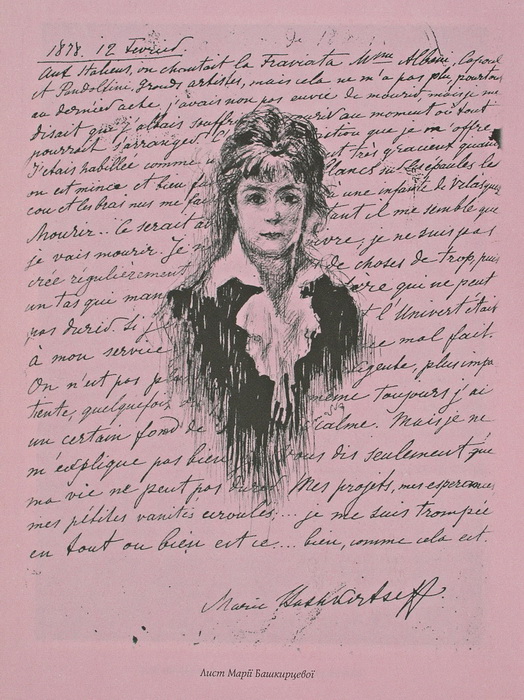 1878. 12 Fevrier.
Aux Italiens, on chantait la Traviata Mme Albani, Capoul
et Pandolfini. Grands artistes, mais cela ne m'a pas plu, pourtant
au dernier acte, j'avais non pas envie de mourir, mais je me
disait que j'allais souffrir au moment où tout
pourrait s'arranger. que je m'offre.
J'étais habillée comme est très gracieux quand
on est mince et bien fa sur les épaules le
cou et les bras nus me fai d'une infante de Velasquez
Mourir.. Ce serait a tant il me semble que
je vais mourir. Je n vivre, je ne suis pas
crée régulièrement de choses de trop, puis
un tas que man ère qui ne peut
pas durer. Si j et l'Univert était
à mon service ce mal fait.
On n'est pas pl igente, plus impo
tente, quelquefois même Toujours j'ai
un certain fond de calme. Mais je ne
m'explique pas bien, vous dis seulement que
ma vie ne peut pas durer. Mes projets, mes esperances
mes pétites vanités ecroulés... je me suis trompée
en tout ou bien est ce... bien, comme cela est.
Marie Bashkirtseff
Лист Марії Башкирцевої